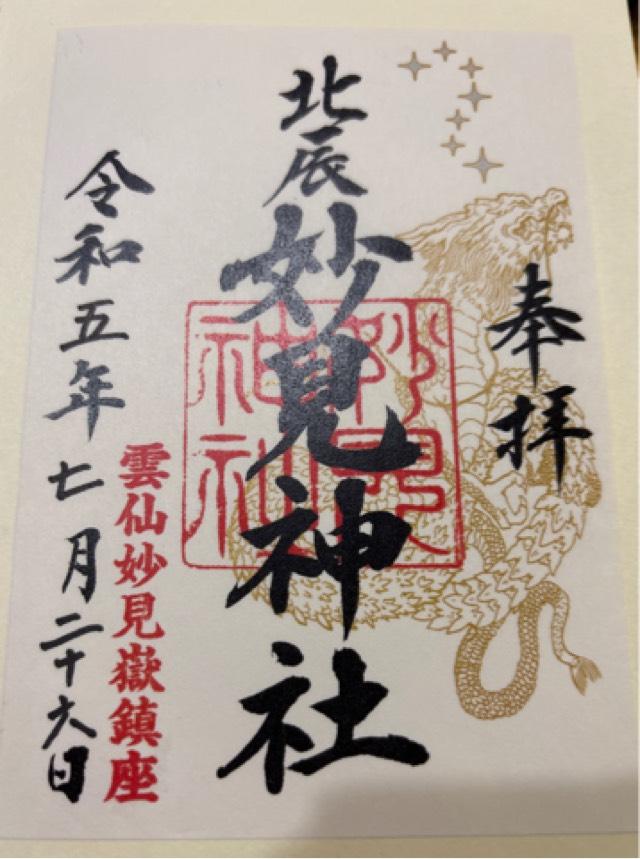 奉拝
北辰
妙見神社
妙見
神社
雲仙妙見嶽鎮座
令和五年七月二十六日